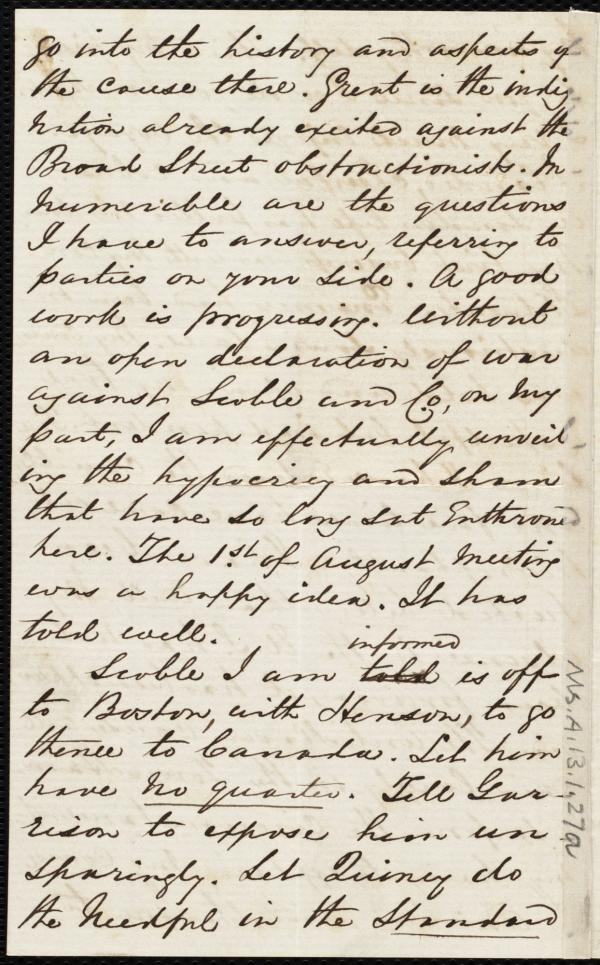 go into the history and aspects of
the cause there. Great is the indig
nation already excited against the
Broad Street obstructionists. In
numerable are the questions
I have to answer, referring to
parties on your side. A good
work is progressing. Without
an open declaration of war
against Scoble and Co, on my
part, I am effectually unveil
ing the hypocricy and sham
that have so long sat Enthroned
here. The 1st. of August Meeting
was a happy idea. It has
told well.
informed
Scoble I am told is off
to Boston, with Henson, to go
thence to Canada. Let him
have no quarter. Tell Gar-
rison to expose him un
sparingly. Let Quincy do
the Needful in the Standard
Ms.A.1.3.1,27a